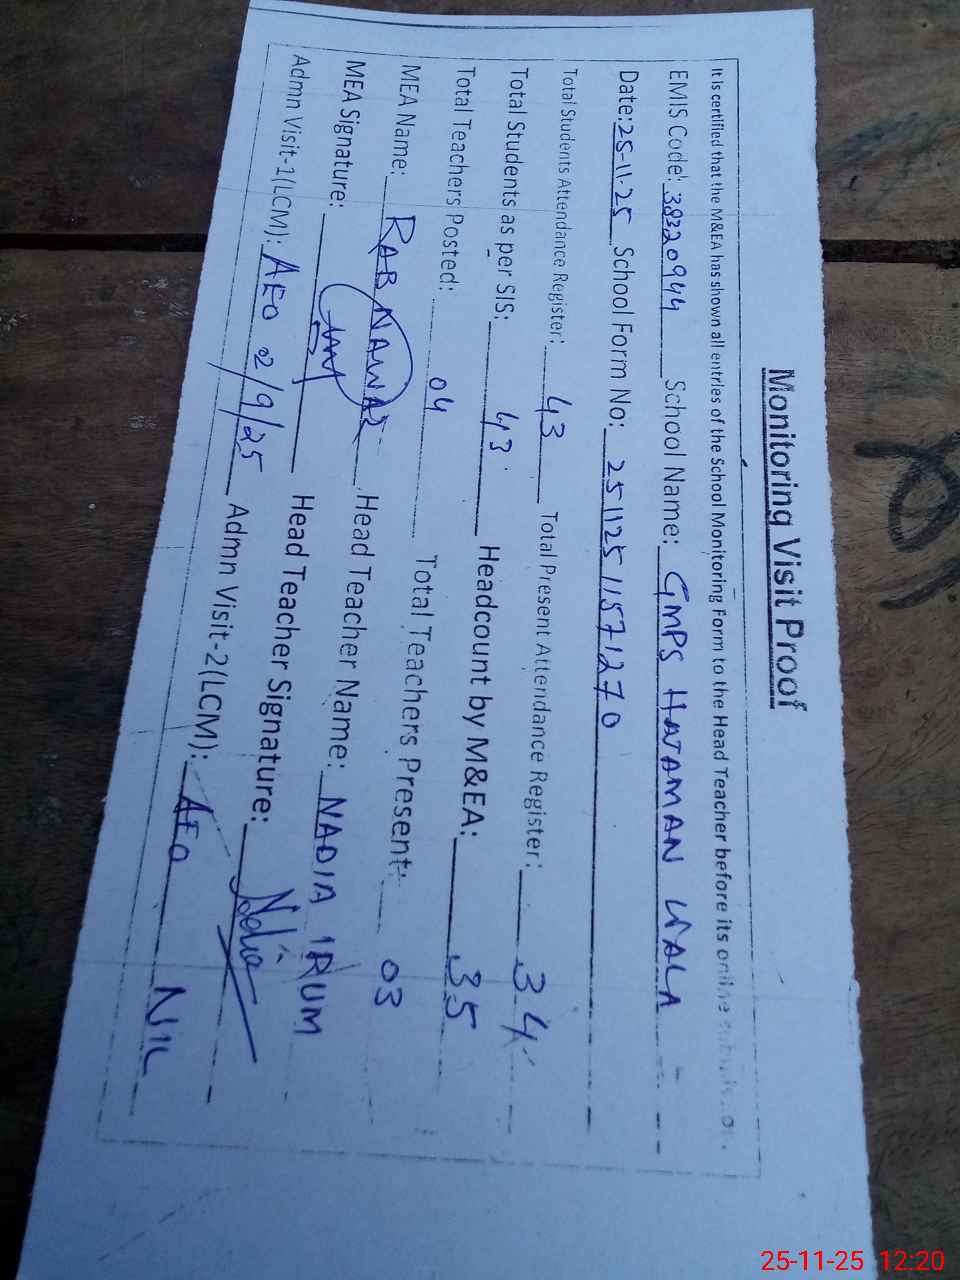 Monitoring Visit Proof
It is certified that the M&EA has shown all entries of the School Monitoring Form to the Head Teacher before its online
EMIS Code: 38320944 School Name: GMPS HATAMAN WALA
Date: 25-11-25 School Form No: 25112511571270
Total Students Attendance Register: 43 Total Present Attendance Register: 34
Total Students as per SIS: 43 Headcount by M&EA: 35
Total Teachers Posted: 04 Total Teachers Present: 03
MEA Name: RAB NAWAZ Head Teacher Name: NADIA IRUM
MEA Signature: Head Teacher Signature: Nadia
Admn Visit-1(LCM): AEO 2/9/25 Admn Visit-2(LCM): AEO NIL
25-11-25 12:20